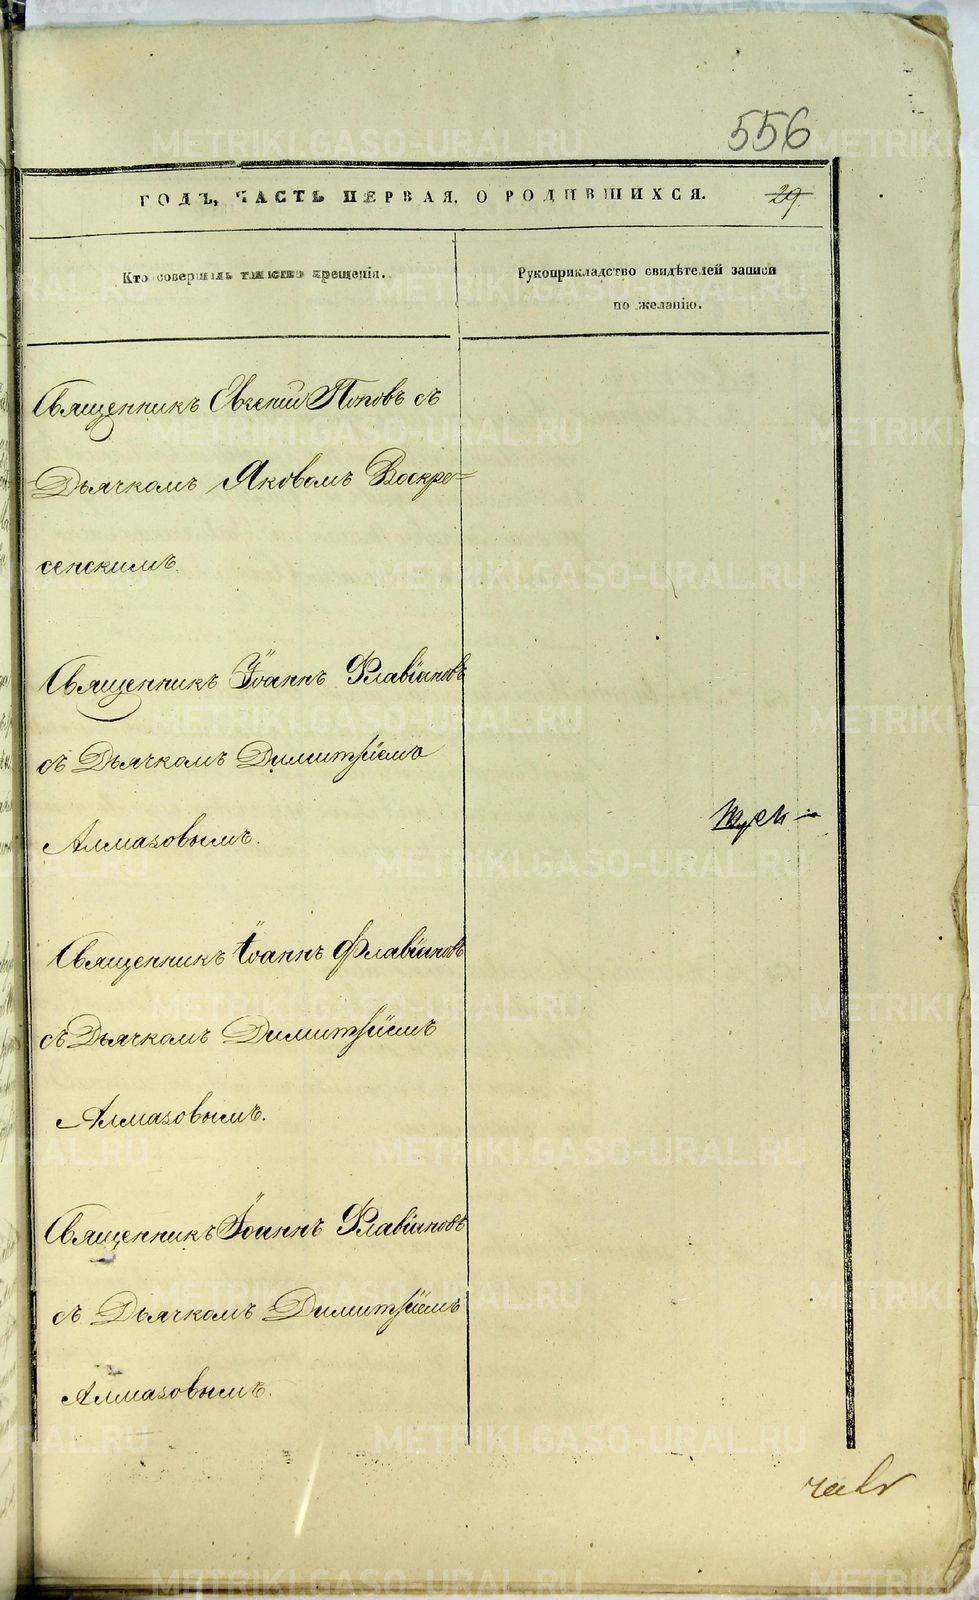 556
ГОДЪ, ЧАСТЬ ПЕРВАЯ, О РОДИВШИХСЯ.
29
Кто совершалъ таинство крещенія.
Рукоприкладство свидѣтелей записи
по желанію.
Священникъ Евгеній Поповъ съ
Дьячкомъ Яковомъ Воскре=
сенскимъ
Священникъ Іоаннъ Флавіановъ
съ Дьячкомъ Димитріемъ
Алмазовымъ.
Священникъ Іоаннъ Флавіановъ
съ Дьячкомъ Димитріемъ
Алмазовымъ.
Священникъ Іоаннъ Флавіановъ
съ Дьячкомъ Димитріемъ
Алмазовымъ.
METRIKI.GASO-URAL.RU